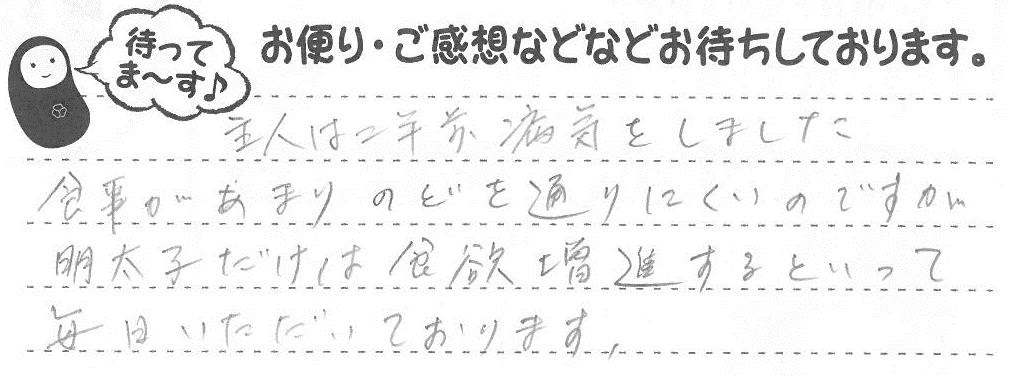 待って
ま～す♪
お便り・ご感想などなどお待ちしております。
主人は二年前病気をしました
食事があまりのどを通りにくいのですが
明太子だけは食欲増進するといって
毎日いただいております、